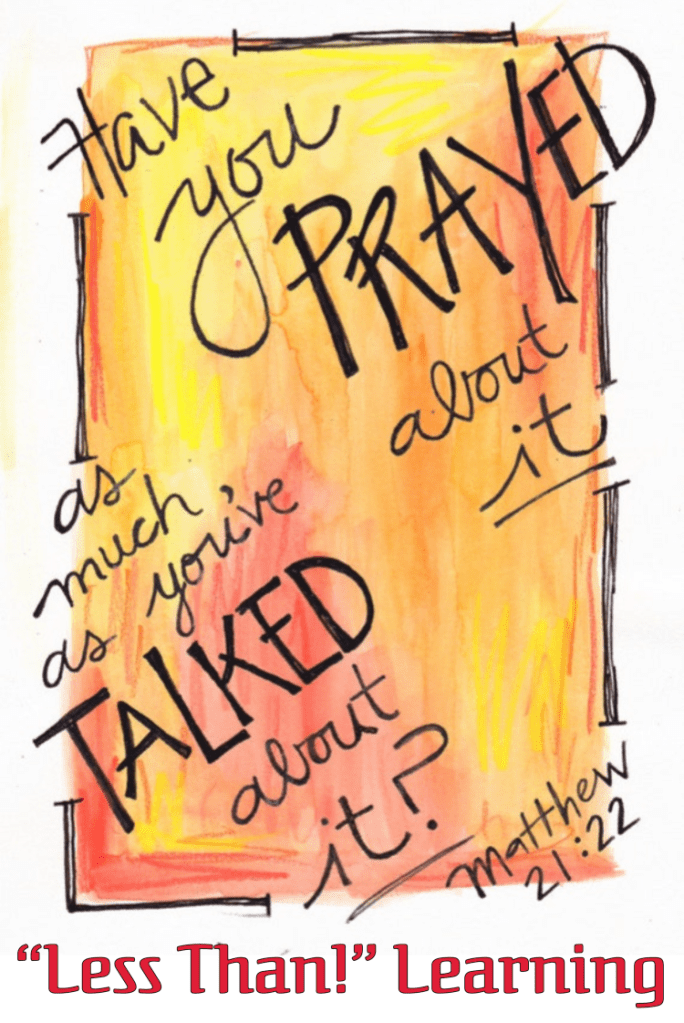 Have
you
PRAYED
about
it
as
much
as you've
TALKED
about
it?
Matthew
21:22
“Less Than!” Learning